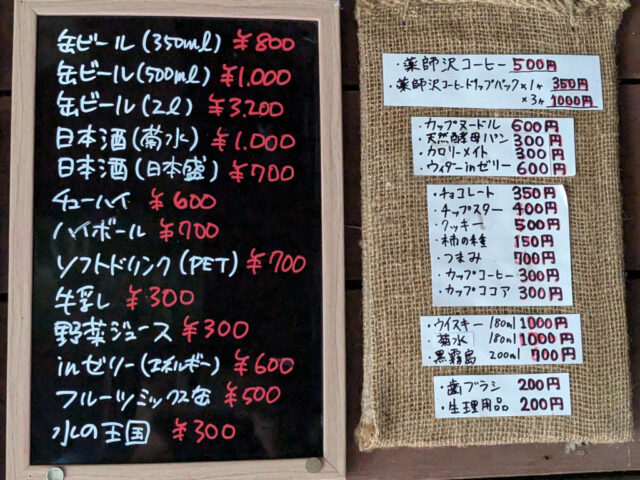 缶ビール(350ml) ¥800
缶ビール(500ml) ¥1.000
缶ビール(2l) ¥3.200
日本酒(菊水) ¥1.000
日本酒(日本盛) ¥700
チューハイ ¥600
ハイボール ¥700
ソフトドリンク(PET) ¥700
牛乳し ¥300
野菜ジュース ¥300
inゼリー(エネルギー) ¥600
フルーツミックス缶 ¥500
水の王国 ¥300
・薬師沢コーヒー 500円
・薬師沢コーヒードリップパック×1ヶ 350円
×3ヶ 1000円
・カップヌードル 600円
・天然酵母パン 300円
・カロリーメイト 300円
・ウィダーinゼリー 600円
・チョコレート 350円
・チップスター 400円
・クッキー 500円
・柿の種 150円
・つまみ 700円
・カップコーヒー 300円
・カップココア 300円
・ウイスキー 180ml 1000円
・菊水 180ml 1000円
・黒霧島 200ml 700円
・歯ブラシ 200円
・生理用品 200円